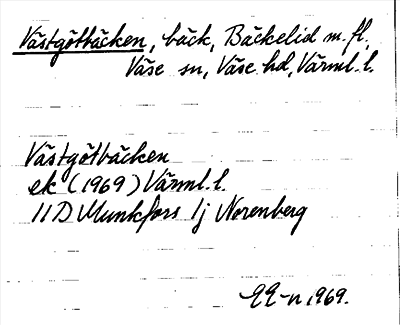 Västgötbäcken, bäck, Bäckelid m. fl.,
Väse sn, Väse hd, Värml. l.
Västgötbäcken
ek (1969) Värml. l.
11D Munkfors 1j Norenberg
1969.